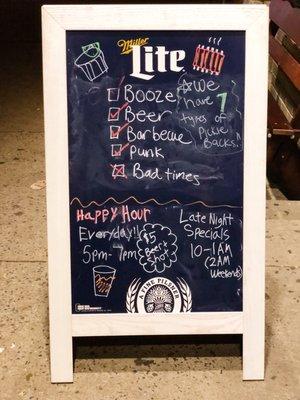 Miller
Lite
Booze
Beer
Barbecue
Punk
Bad times
☆We
have 7
types of
Pickle
Backs!
Happy Hour
Everyday!!
5pm-7pm
$5
Beer &
Shot
Late Night
Specials
10-1AM
(2AM
Weekends)
A FINE PILSNER